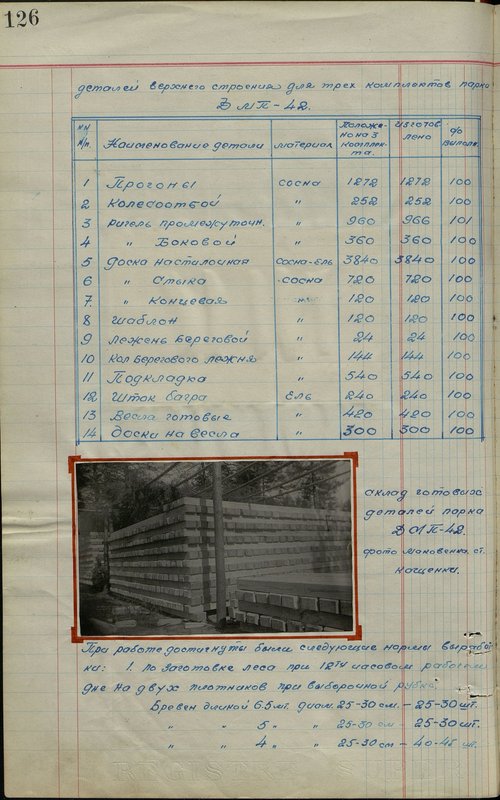 126
деталей верхнего строения для трех комплектов парка
ДМП-42.
NN п/п. Наименование детали материал Положено на 3 комплекта. Изготовлено % выполн.
1 Прогоны сосна 1272 1272 100
2 Колесоотбой " 252 252 100
3 Ригель промежуточн. " 960 966 101
4 " Боковой " 360 360 100
5 Доска настилочная сосна-ель 3840 3840 100
6 " Стыка сосна 720 720 100
7. " Концевая 120 120 100
8 Шаблон " 120 120 100
9 Лежень береговой " 24 24 100
10 Кол берегового лежня " 144 144 100
11 Подкладка " 540 540 100
12 Шток багра Ель 240 240 100
13 Весла готовые " 420 420 100
14 Доски на весла " 300 300 100
склад готовых
деталей парка
ДМП-42.
фото Маковенка ст.
Кащенки.
При работе достигнуты были следующие нормы выработ
ки: 1. По заготовке леса при 12ти часовом рабочем
дне на двух плотников при выборочной рубке:
Бревен длиной 6.5 мт. диам. 25-30 см. - 25-30 шт.
" " 5 " " 25-30 см - 25-30 шт.
" " 4 " " 25-30 см - 40-45 шт.